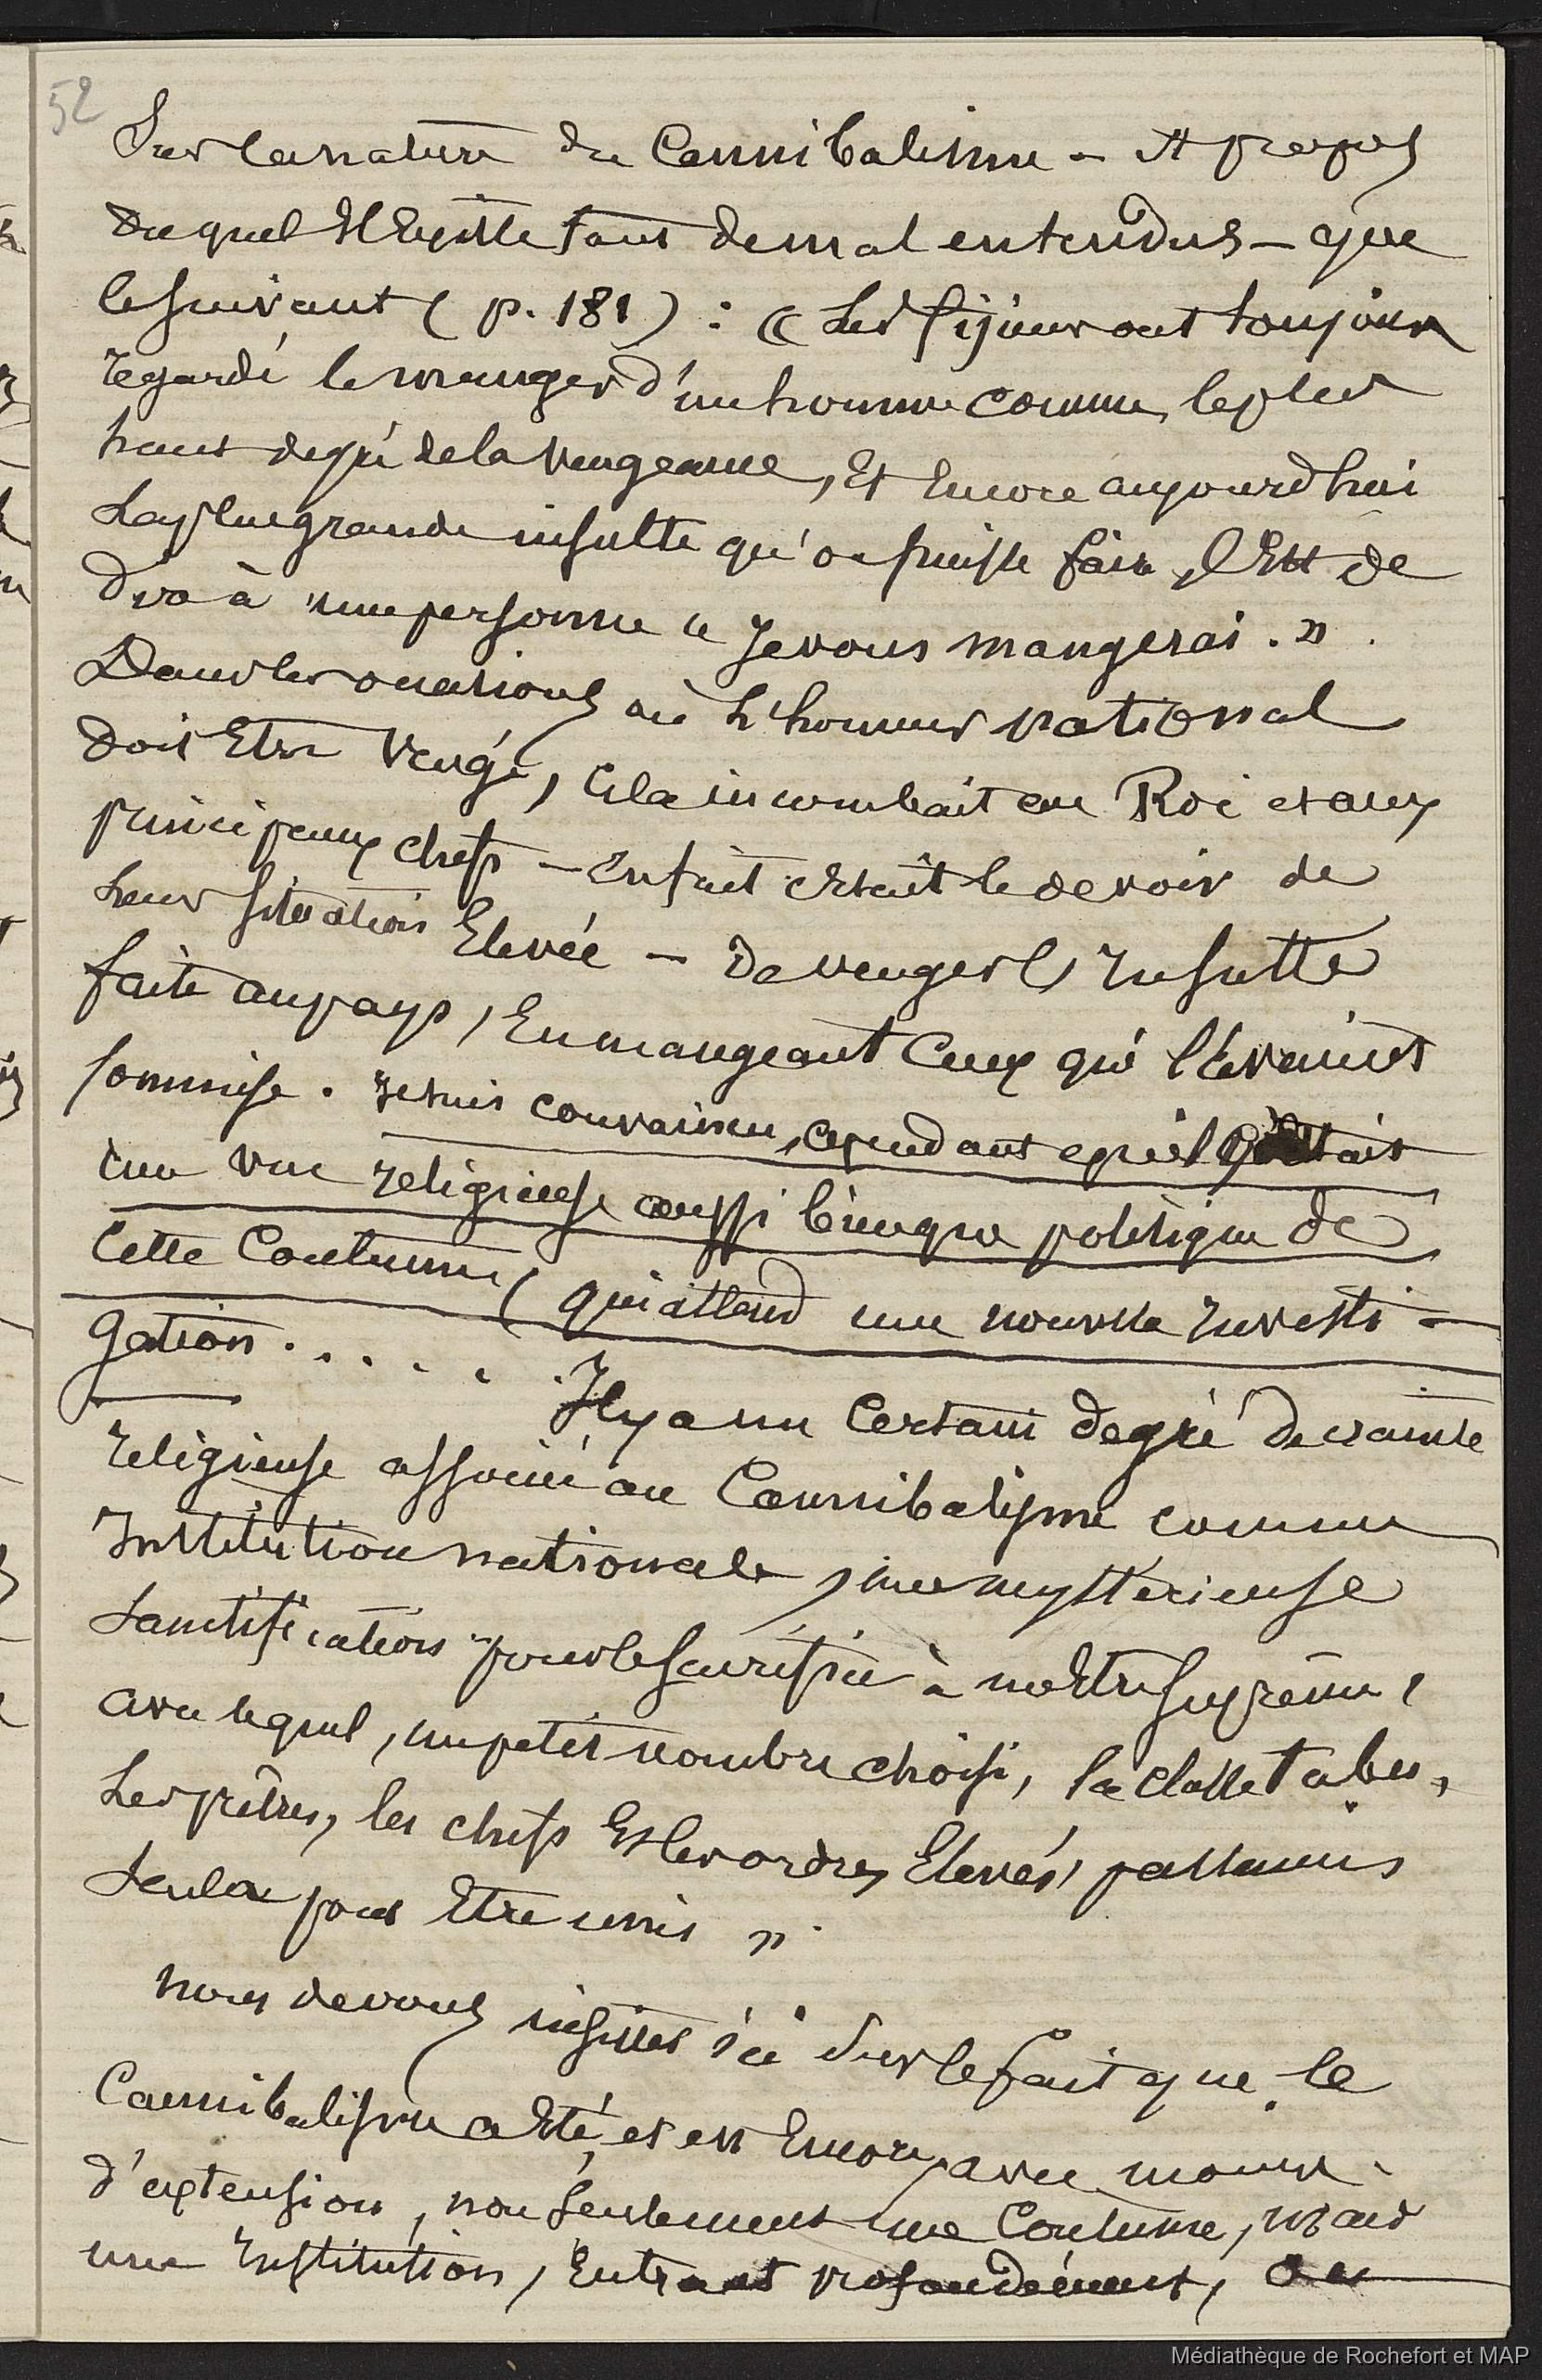 52
Sur la nature du Cannibalisme - A propos
duquel Il Existe tant de mal entendus - que
le suivant (p. 181) : « Les fijiens ont toujours
regardé le manger d'un homme comme le plus
haut degré de la vengeance, Et Encore aujourd'hui
La plus grande insulte qu'on puisse faire, c'Est de
dire à une personne « Je vous mangerai. ».
Dans les occasions où l'honneur national
doit Etre vengé, Cela incombait au Roi et aux
principaux chefs - En fait c'était le devoir de
Leur Situation Elevée - De venger l'Insulte
faite au pays, En mangeant Ceux qui l'avaient
Commise. Je suis convaincu, cependant qu'il y avait
une vue religieuse aussi bien que politique de
Cette Coutume, qui attend une nouvelle Investi-
gation......
Il y a un Certain degré de crainte
religieuse associé au Cannibalisme comme
Institution nationale, une mystérieuse
Sanctification pour le Sacrifice à un Etre Suprême,
avec lequel, un petit nombre choisi, la classe tabu,
Les prêtres, les chefs Et les ordres Elevés, passaient
Seuls pour Etre unis ».
Nous devons insister ici sur le fait que le
Cannibalisme a Eté, et est Encore, avec moins
d'extension, non Seulement une Coutume, mais
une Institution, Entrant profondément, Da
Médiathèque de Rochefort et MAP